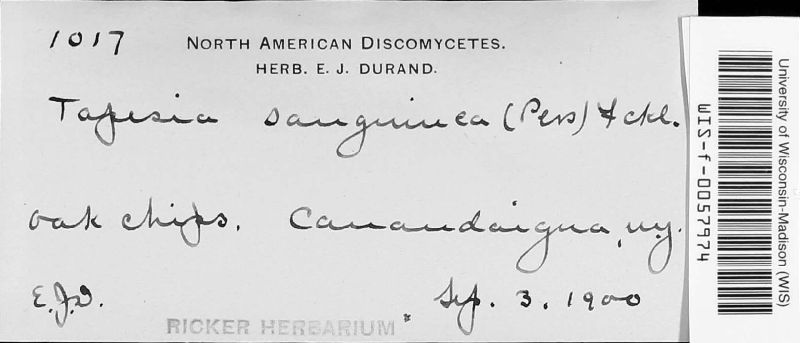 1017 NORTH AMERICAN DISCOMYCETES.
HERB. E. J. DURAND.
Tapesia sanguinea (Pers) Fckl.
oak chips. Canandaigua, ny.
E.J.D. Sep. 3. 1900
RICKER HERBARIUM
University of Wisconsin-Madison (WIS)
WIS-f-0057974